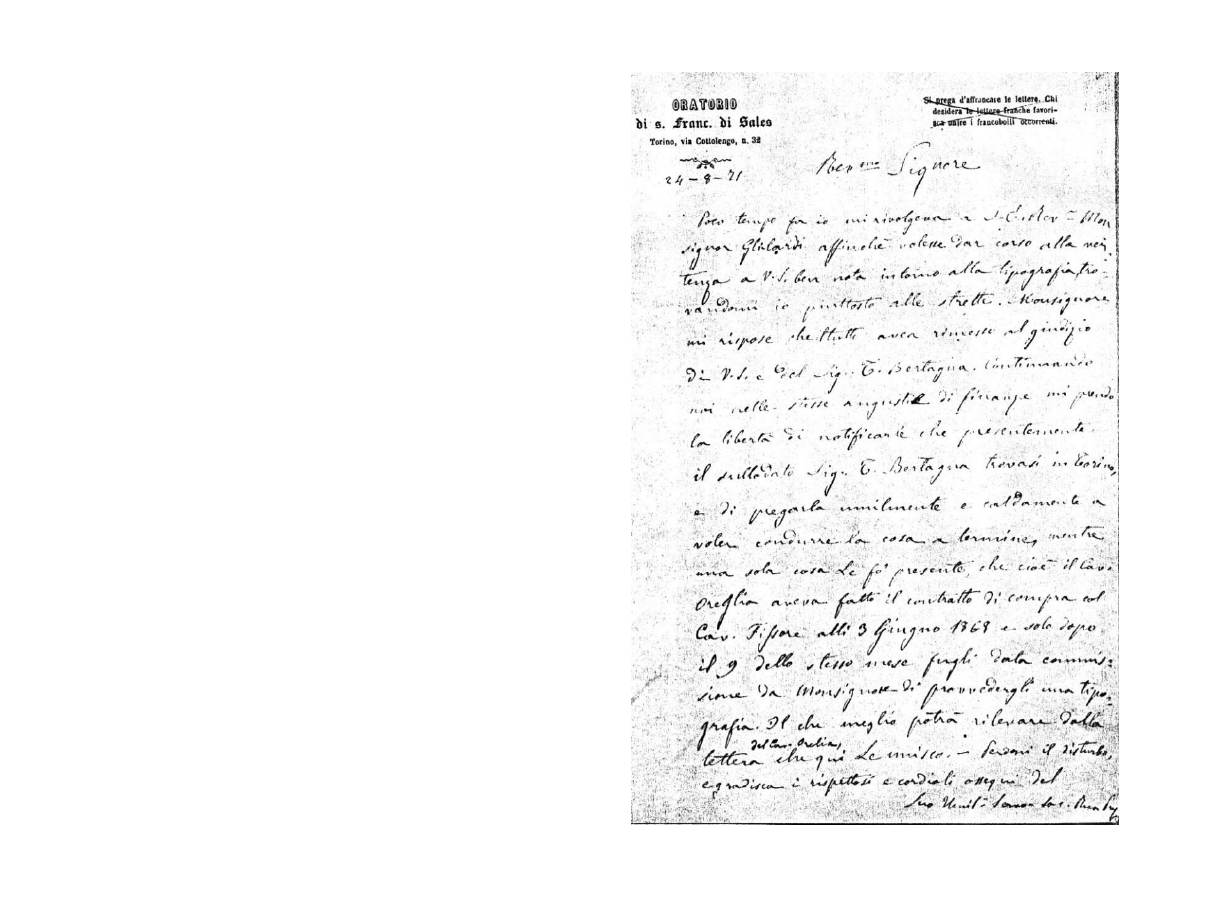 ORATORIO
di s. Franc. di Sales
Torino, via Cottolengo, n. 32
Si prega d'affrancare le lettere. Chi
desidera le lettere franche favori-
sca unire i francobolli occorrenti.
24-8-71
Rev.mo Signore
Poco tempo fa io mi rivolgeva a S. E. Rev Mon
signor Ghilardi affinchè volesse dar corso alla ver
tenza a V. S. ben nota intorno alla tipografia, tro-
vandomi io piuttosto alle strette. Monsignore
mi rispose che tutto avea rimesso al giudizio
di V. S. e del Sig. T. Bertagna. Continuando
noi nelle stesse angustie di finanze mi prendo
la libertà di notificarle che presentemente
il sullodato Sig. T. Bertagna trovasi in Torino,
e di pregarla umilmente e caldamente a
voler condurre la cosa a termine, mentre
una sola cosa Le fo' presente, che cioè il Cav.
Oreglia aveva fatto il contratto di compra col
Cav. Fissore alli 3 Giugno 1868 e solo dopo
il 9 dello stesso mese fugli data commis-
sione da Monsignore di provvedergli una tipo-
grafia. Il che meglio potrà rilevare dalla
del Cav. Orelia,
lettera che qui Le unisco. - Perdoni il disturbo,
e gradisca i rispettosi e cordiali ossequi del
Suo Umil. Servo Sac. Rua